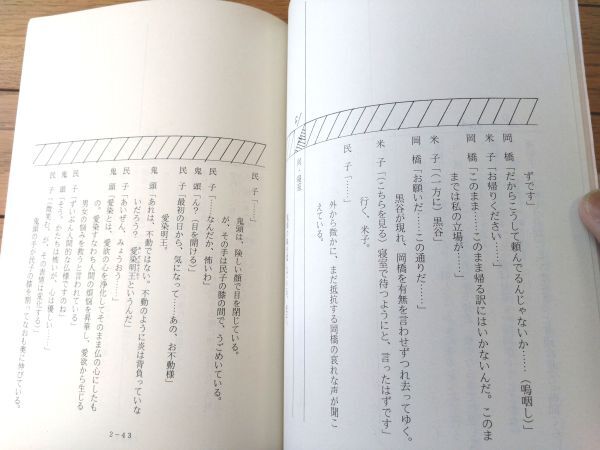 ずです」
岡　橋「だからこうして頼んでるんじゃないか……（嗚咽し）」
米　子「お帰りください……」
岡　橋「このまま……このまま帰る訳にはいかないんだ。このま
までは私の立場が……」
米　子「（一方に）黒谷」
岡　橋「お願いだ……この通りだ……」
黒谷が現れ、岡橋を有無を言わせずつれ去ってゆく。
米　子「（こちらを見る）寝室で待つようにと、言ったはずです」
行く、米子。
民　子「……」
外から微かに、まだ抵抗する岡橋の哀れな声が聞こ
えている。
51
同・寝室
民　子「……」
鬼頭は、険しい顔で目を閉じている。
が、その手は民子の膝の間で、うごめいている。
民　子「……なんだか、怖いわ」
鬼　頭「ん？（目を開ける）」
民　子「最初の日から、気になって……あの、お不動様」
愛染明王。
鬼　頭「あれは、不動ではない。不動のように炎は背負っていな
いだろう？　愛染明王というんだ」
民　子「あいぜん、みょうおう……」
鬼　頭「愛染とは、愛欲の心を浄化してそのまま仏の心にしたも
の。愛染すなわち人間の煩悩を昇華し、愛欲から生じる
男女の悩みを救うと言われている」
民　子「ずいぶん人間的な仏様ですのね」
鬼　頭「そう。かたちは怖いが、心は優しい……」
民　子「（微笑む。が、その表情は変化する）」
鬼頭の手が民子の体を割ってなおも奥に伸びている。
2－43